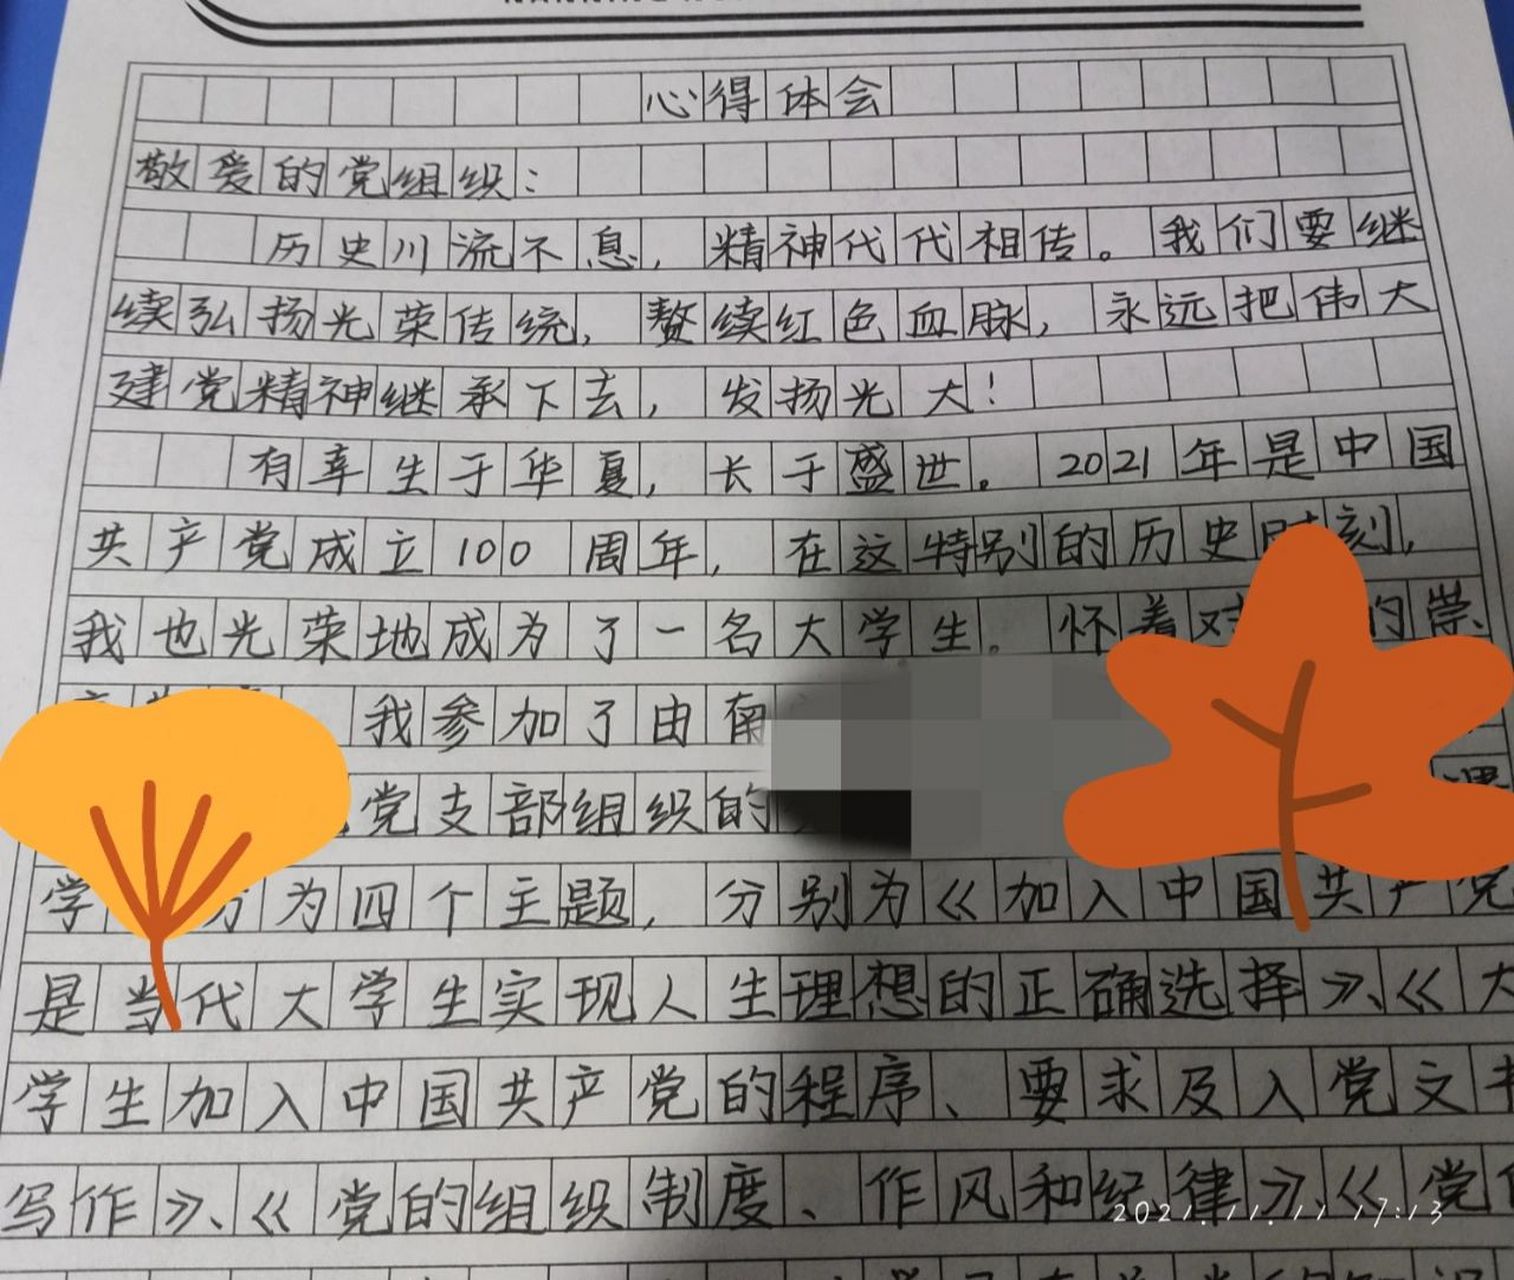 心得体会
敬爱的党组织:
历史川流不息,精神代代相传。我们要继
续弘扬光荣传统,赘续红色血脉,永远把伟大
建党精神继承下去,发扬光大!
有幸生于华夏,长于盛世。2021年是中国
共产党成立100周年,在这特别的历史时刻,
我也光荣地成为了一名大学生。怀着对的崇
我参加了由南
党支部组织的
学分为四个主题,分别为《加入中国共产党
是当代大学生实现人生理想的正确选择》、《大
学生加入中国共产党的程序、要求及入党文书
写作》、《党的组织制度、作风和纪律》、《党
2021.11.11 17:13